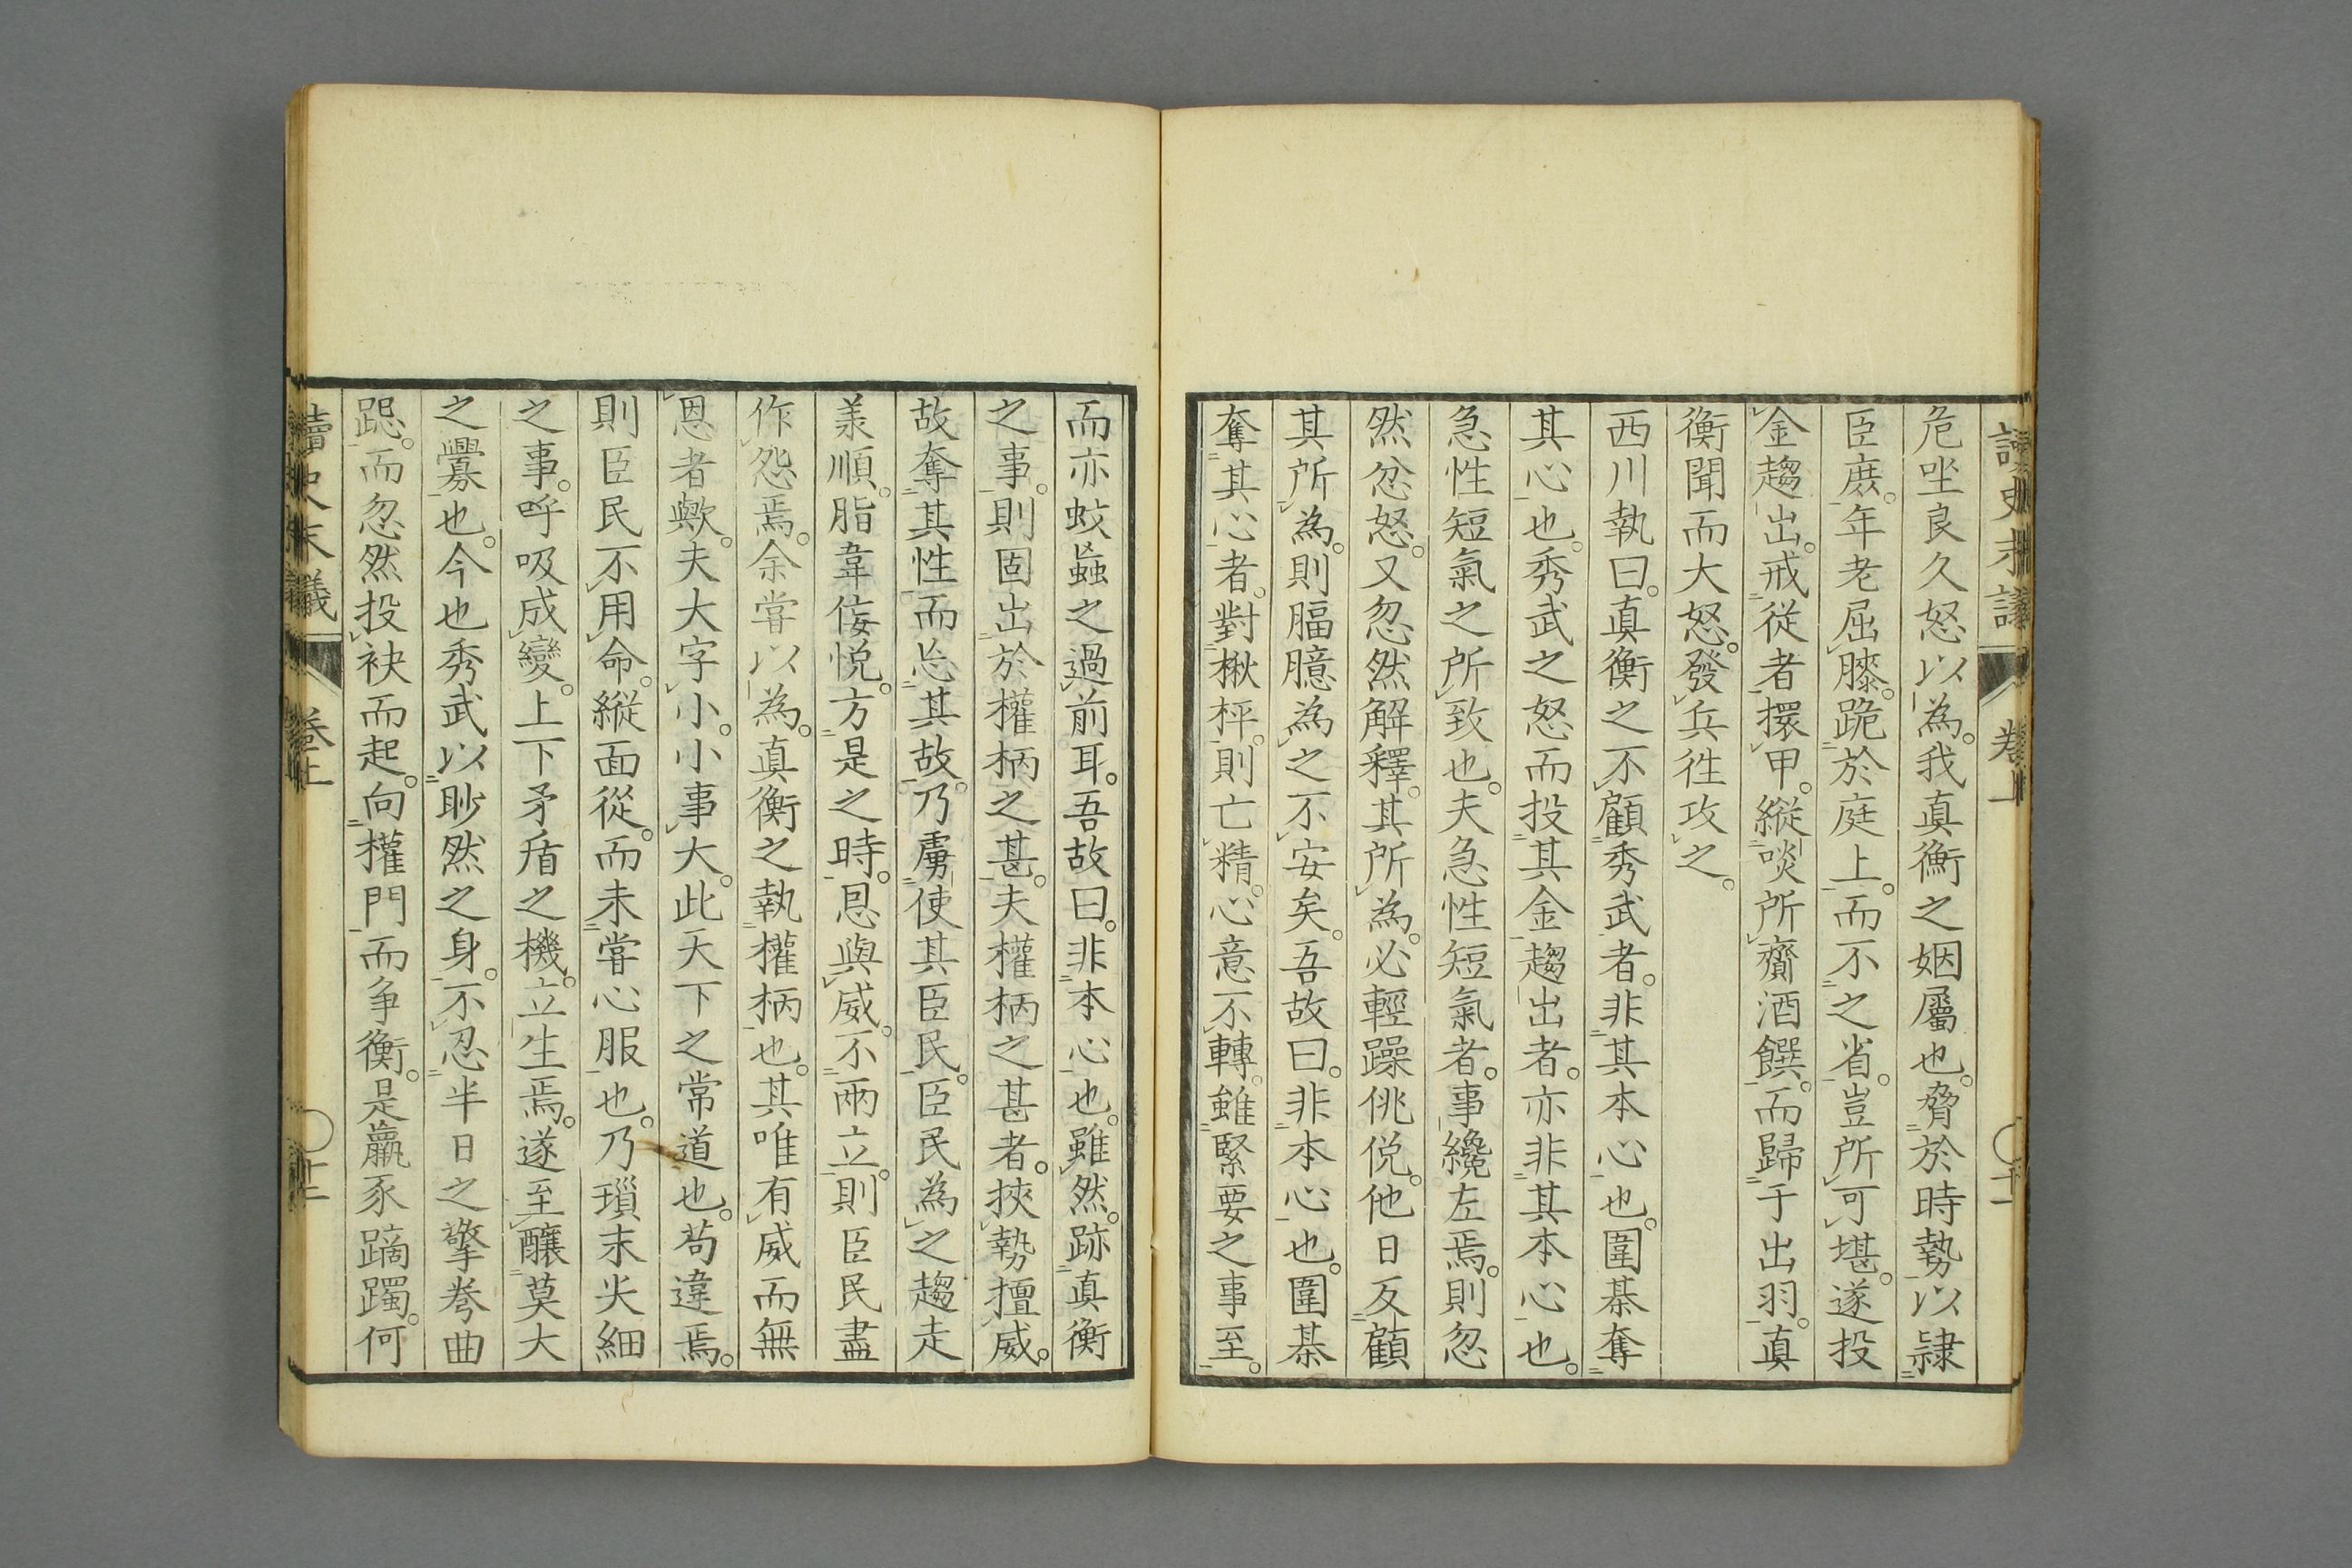 危坐良久怒以為。我真衡之姻屬也。脅於時勢以隷
臣庶。年老屈膝。跪於庭上。而不之省。豈所可堪。遂投
金趨出。戒從者擐甲。縱啖所齎酒饌。而歸于出羽。真
衡聞而大怒。發兵徃攻之。
西川執曰。真衡之不顧秀武者。非其本心也。圍棊奪
其心也。秀武之怒而投其金趨出者。亦非其本心也。
急性短氣之所致也。夫急性短氣者。事纔左焉。則忽
然忿怒。又忽然解釋。其所為。必輕躁佻悦。他日反顧
其所為。則腷臆為之不安矣。吾故曰。非本心也。圍棊
奪其心者。對楸枰。則亡精。心意不轉。雖緊要之事至。
而亦蚊蝱之過前耳。吾故曰。非本心也。雖然。跡真衡
之事。則固出於權柄之甚。夫權柄之甚者。挾勢擅威。
故奪其性而忘其故。乃虜使其臣民。臣民為之趨走
羕順。脂韋侫悦。方是之時。恩與威。不兩立。則臣民盡
作怨焉。余嘗以為。真衡之執權柄也。其唯有威而無
恩者歟。夫大字小。小事大。此天下之常道也。苟違焉。
則臣民不用命。縱面從。而未嘗心服也。乃瑣末尖細
之事。呼吸成變。上下矛盾之機。立生焉。遂至釀莫大
之釁也。今也秀武以眇然之身。不忍半日之擎拳曲
跽。而忽然投袂而起。向權門而争衡。是羸豕蹢躅。何
讀史末議 卷上